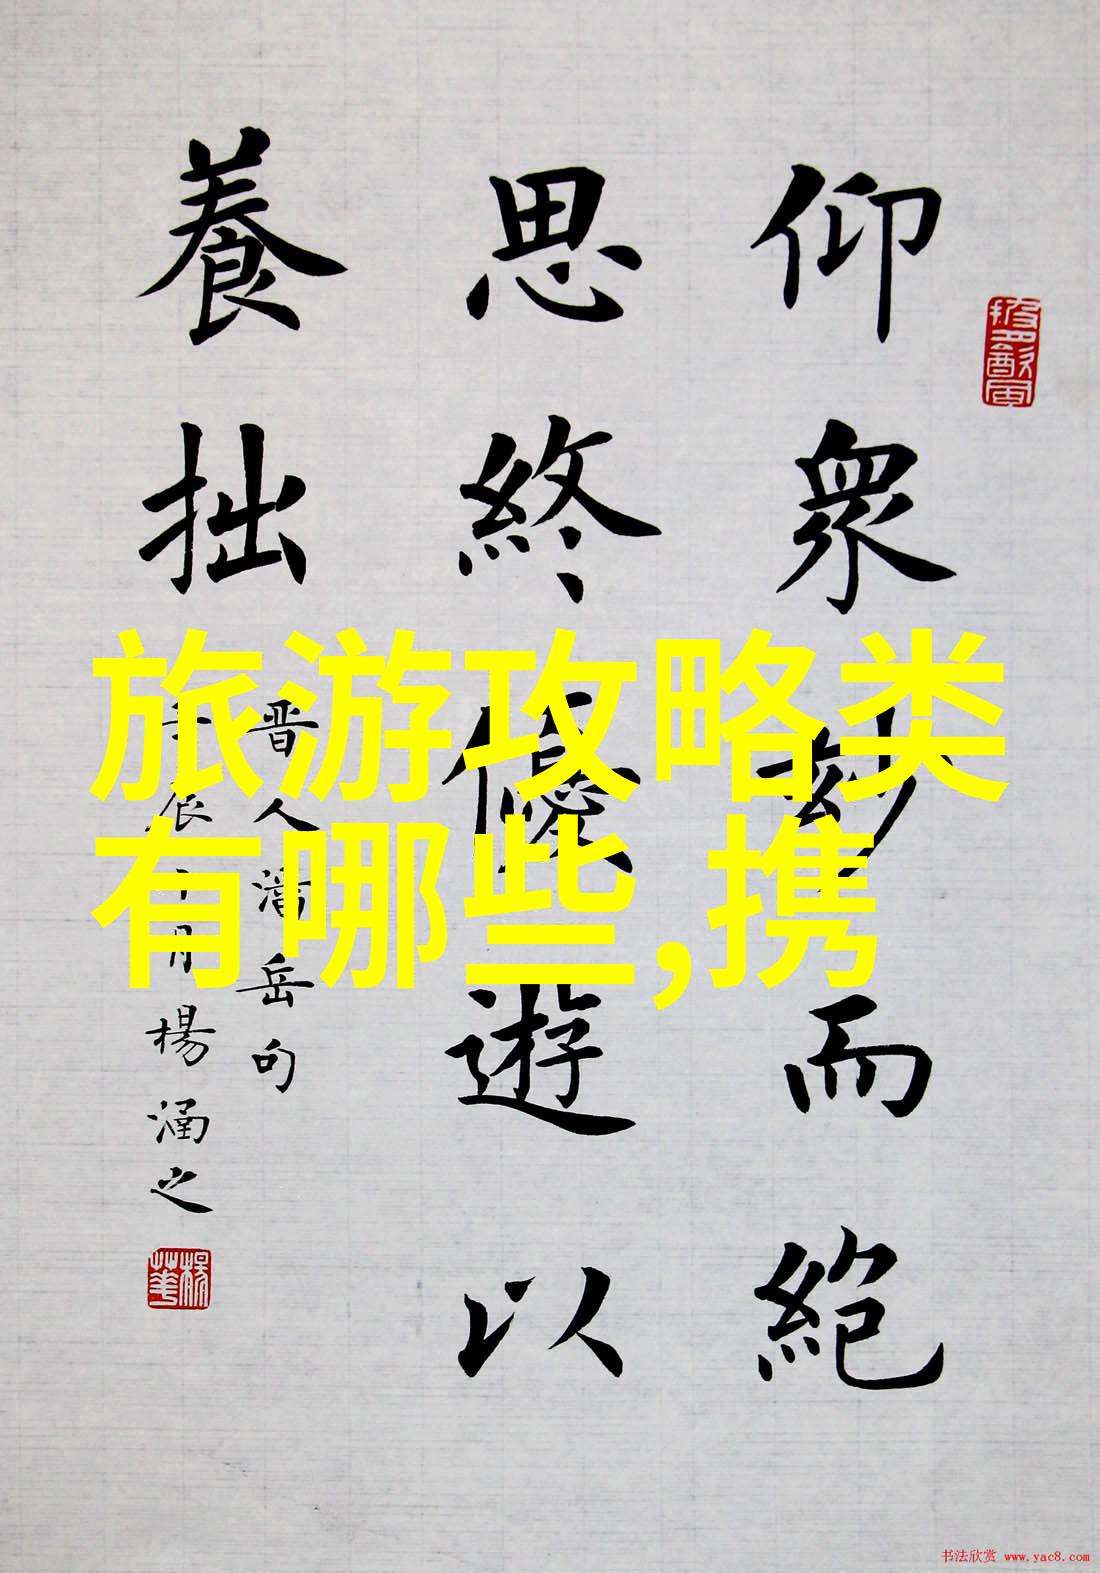 仰眾玅而絶
思終優遊以
養拙
晋人潘岳句
壬辰十月楊涵之
旅游攻略类
有哪些,携
书法欣赏 www.yac8.com